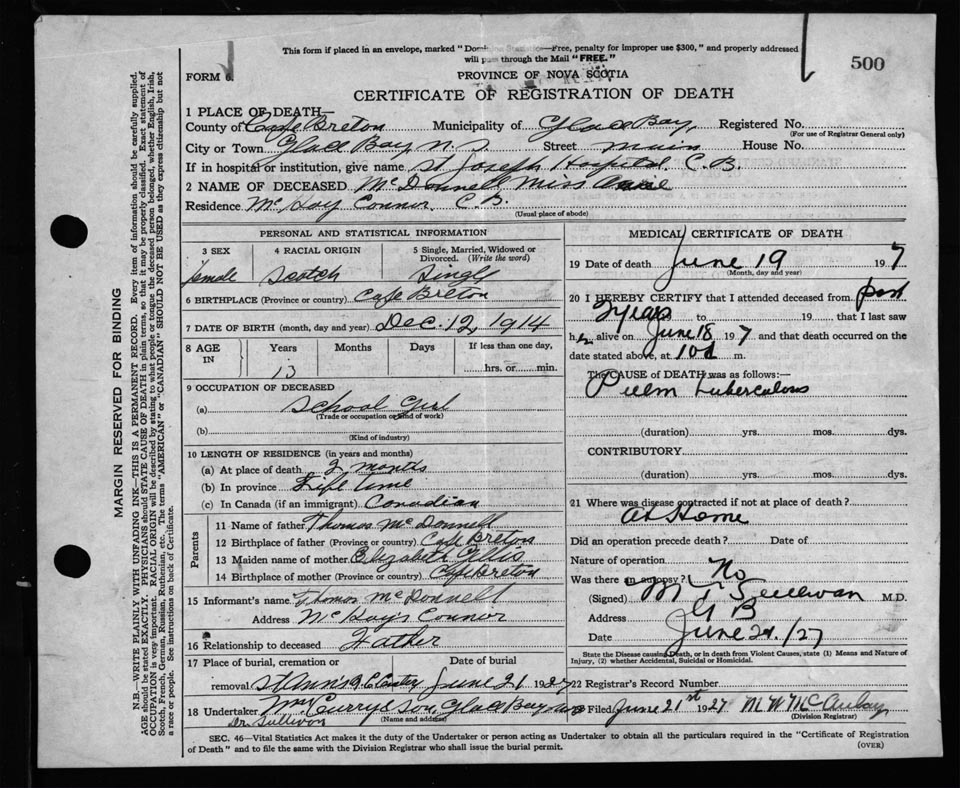 This form if placed in an envelope, marked "Dominion Statistics—Free, penalty for improper use $300," and properly addressed
will pass through the Mail "FREE."
500
FORM 6.
PROVINCE OF NOVA SCOTIA
CERTIFICATE OF REGISTRATION OF DEATH
1 PLACE OF DEATH—
County of Cape Breton Municipality of Glace Bay, Registered No.
(For use of Registrar General only)
City or Town Glace Bay, N.S Street Main House No.
If in hospital or institution, give name St Joseph Hospital C.B.
2 NAME OF DECEASED McDonnell Miss
Residence McKay Connor C.B.
(Usual place of abode)
PERSONAL AND STATISTICAL INFORMATION
3 SEX 4 RACIAL ORIGIN 5 Single, Married, Widowed or
Divorced. (Write the word)
female Scotch Single
6 BIRTHPLACE (Province or country) Cape Breton
7 DATE OF BIRTH (month, day and year) Dec. 12, 1914
8 AGE IN Years Months Days If less than one day,
13 hrs. or min.
9 OCCUPATION OF DECEASED
(a) School Girl
(Trade or occupation or kind of work)
(b)
(Kind of industry)
10 LENGTH OF RESIDENCE (in years and months)
(a) At place of death 2 months
(b) In province Life time
(c) In Canada (if an immigrant) Canadian
Parents
11 Name of father Thomas McDonnell
12 Birthplace of father (Province or country) Cape Breton
13 Maiden name of mother Elizabeth Gillis
14 Birthplace of mother (Province or country) Cape Breton
15 Informant's name Thomas McDonnell
Address McKays Connor
16 Relationship to deceased Father
17 Place of burial, cremation or Date of burial
removal St Anns June 21 1927
18 Undertaker Wm Curry & Son Glace Bay
(Name and address)
Dr. Sullivan
MEDICAL CERTIFICATE OF DEATH
19 Date of death June 19 19 7
(Month, day and year)
20 I HEREBY CERTIFY that I attended deceased from past
2 years to 19 that I last saw
h er alive on June 18 19 7 and that death occurred on the
date stated above, at 10 m.
The CAUSE OF DEATH was as follows:—
Pulm tuberculous
(duration) yrs. mos. dys.
CONTRIBUTORY
(duration) yrs. mos. dys.
21 Where was disease contracted if not at place of death?
At Home
Did an operation precede death? Date of
Nature of operation
Was there an autopsy? No
(Signed) M T Sullivan M.D.
Address G B
Date June 21/27
State the Disease causing Death, or in death from Violent Causes, state (1) Means and Nature of
Injury, (2) whether Accidental, Suicidal or Homicidal.
22 Registrar's Record Number
Filed June 21st 1927
(Division Registrar)
SEC. 46—Vital Statistics Act makes it the duty of the Undertaker or person acting as Undertaker to obtain all the particulars required in the "Certificate of Registration
of Death" and to file the same with the Division Registrar who shall issue the burial permit.
(OVER)
MARGIN RESERVED FOR BINDING
N.B.—WRITE PLAINLY WITH UNFADING INK—THIS IS A PERMANENT RECORD. Every item of information should be carefully supplied.
AGE should be stated EXACTLY. PHYSICIANS should STATE CAUSE OF DEATH in plain terms, so that it may be properly classified. Exact statement of
OCCUPATION is very important. RACIAL ORIGIN will be described by stating to what people or tongue the deceased person belonged, whether English, Irish,
Scotch, French, German, Russian, Ruthenian, etc. The terms "AMERICAN" or "CANADIAN" SHOULD NOT BE USED as they express citizenship but not
a race or people. See instructions on back of Certificate.